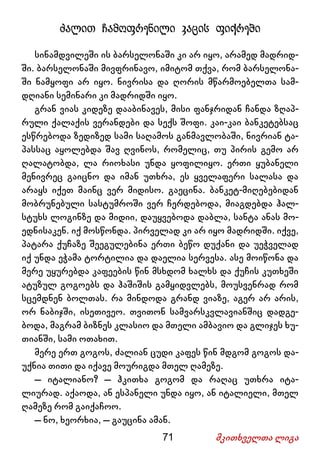 ძალით ჩამოფრენილი კაცის ფიქრები
სინამდვილეში ის ბარსელონაში კი არ იყო, არამედ მადრიდ-
ში. ბარსელონაში მივფრინავო, იმიტომ თქვა, რომ ბარსელონა-
ში ნამყოფი არ იყო. ნივრისა და ღორის მწარმოებელთა სამ-
დღიანი სემინარი კი მადრიდში იყო.
გრან ვიას კიდეზე დააბინავეს, მისი ფანჯრიდან ჩანდა ზღაპ-
რული ქალაქის ვერანდები და სექს შოფი. კაი-კაი ბანკეტებსაც
ესწრებოდა ზედიზედ სამი საღამოს განმავლობაში, ნივრიან ტა-
პასსაც აყოლებდა შავ ღვინოს, რომელიც, თუ პირის გემო არ
ღალატობდა, ლა რიოხასი უნდა ყოფილიყო. ერთი ყუბანელი
მენივრეც გაიცნო და იმან უთხრა, ეს ყველაფერი სალასა და
არაყს იქეთ მაინც ვერ მიდისო. გაეცინა. ბანკეტ-მიღებებიდან
მობრუნებული სასტუმროში ვერ ჩერდებოდა, მიაგდებდა ჰალ-
სტუხს ლოგინზე და მიდიი, დაუყვებოდა დაბლა, სანტა ანას მო-
ედნისაკენ. იქ მოსწონდა. პირველად კი არ იყო მადრიდში. იქვე,
პატარა ქუჩაზე შეეგულებინა ერთი ბეწო დუქანი და უეჭველად
იქ უნდა ეჭამა ტორტილია და დაელია სერვესა. ასე მოიწონა და
მერე უყურებდა კაფეების წინ მსხდომ ხალხს და ქუჩის კუთხეში
ატუზულ გოგოებს და ჰაშიშის გამყიდვლებს, მოუსვენრად რომ
სცემდნენ ბოლთას. რა მინდოდა გრანდ ვიაზე, აგერ არ არის,
ორ ნაბიჯში, ისეთივეო. თვითონ სამვარსკვლავიანშიც დადგე-
ბოდა, მაგრამ ბიზნეს კლასიო და მთელი ამბავიო და გლიჯეს ხუ-
თიანში, სამი ოთახით.
მერე ერთ გოგოს, ძალიან ცუდი კაფეს წინ მდგომ გოგოს და-
უქნია თითი და იქავე მოურიგდა მთელ ღამეზე.
— იტალიანო? — ჰკითხა გოგომ და რაღაც უთხრა იტა-
ლიურად. აქაოდა, ან ესპანელი უნდა იყო, ან იტალიელი, მთელ
ღამეზე რომ გაიქაჩოო.
— ნო, ხეორხია, — გაუცინა ამან.
71 მკითხველთა ლიგა